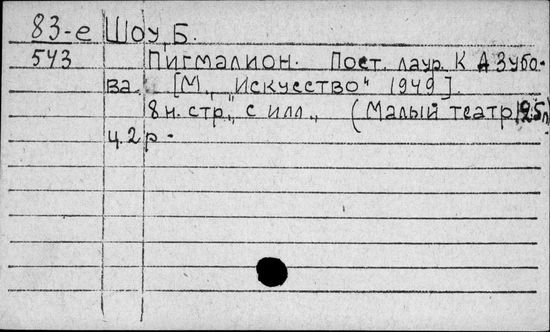 83-е Шоу, Б.
543 Пигмалион. Пост. лаур. К А Зубо-
ва. [М., „Искусство“ 1949].
8 н. стр., с илл., (Малый театр
ц. 2 р.